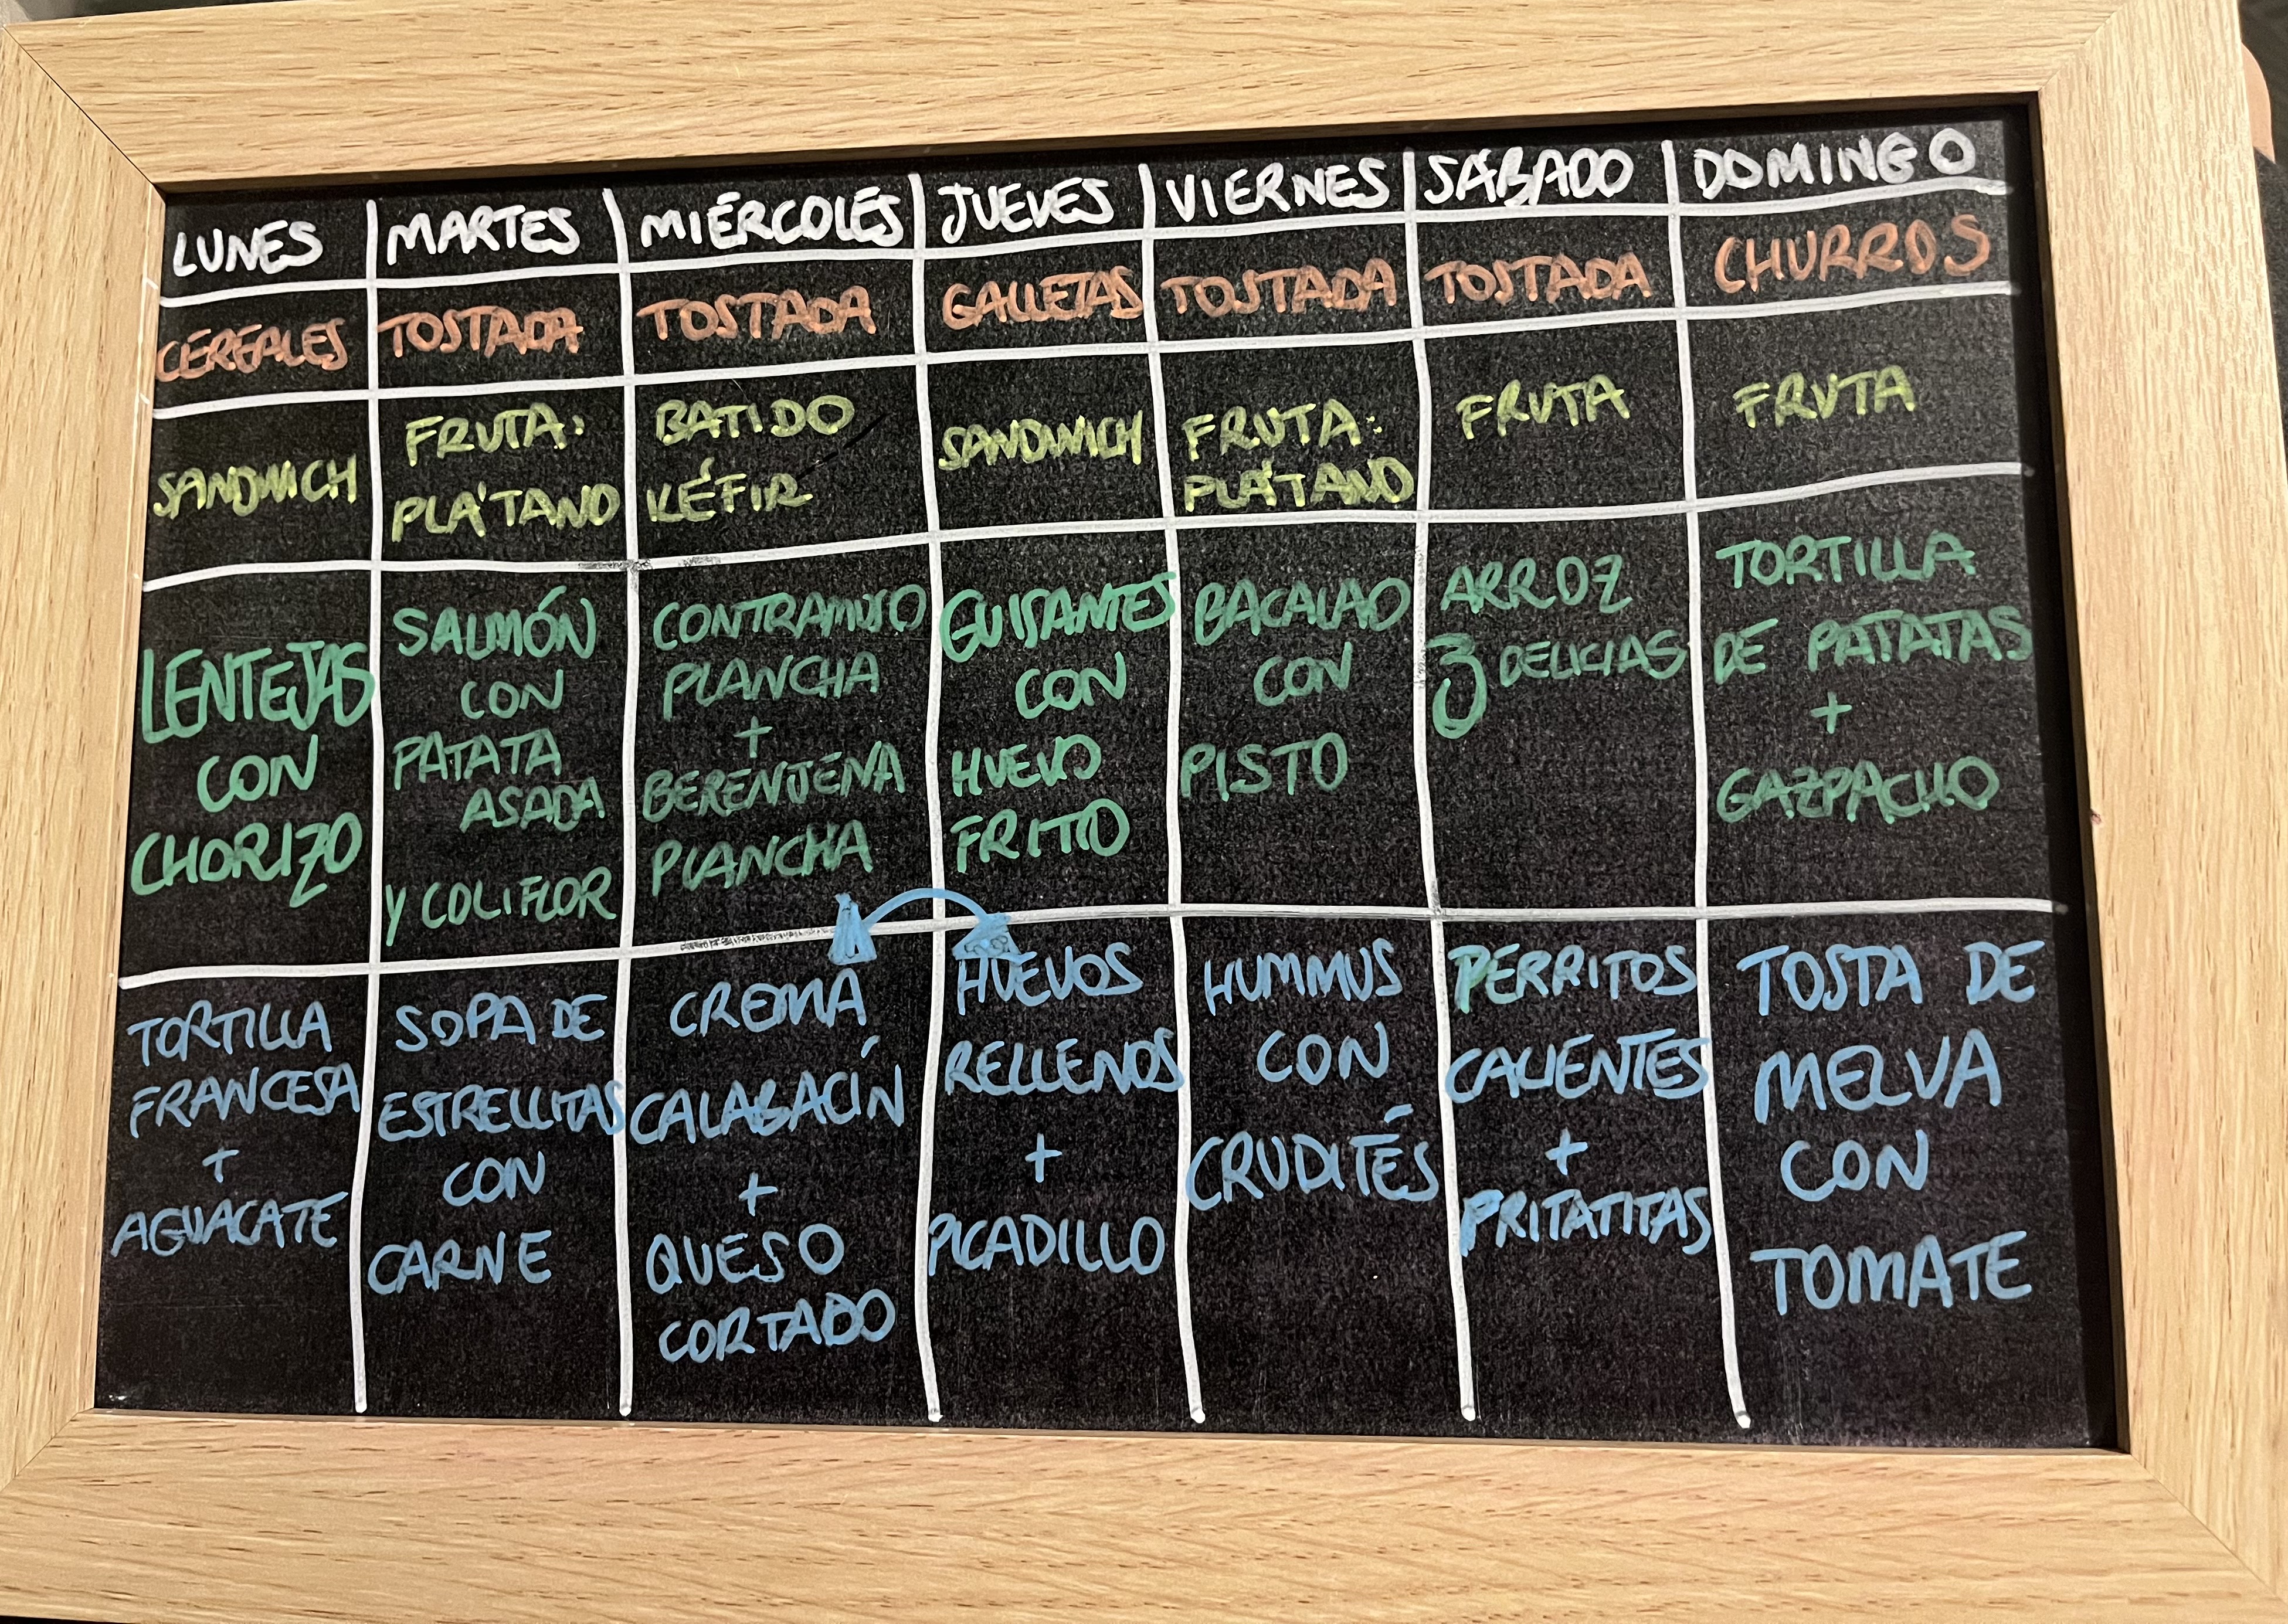 LUNES
MARTES
MIÉRCOLÉS
JUEVES
VIERNES
SÁBADO
DOMINGO
CEREALES
TOSTADA
TOSTADA
GALLETAS
TOSTADA
TOSTADA
CHURROS
SANDWICH
FRUTA:
PLÁTANO
BATIDO
KÉFIR
SANDWICH
FRUTA:
PLÁTANO
FRUTA
FRUTA
LENTEJAS
CON
CHORIZO
SALMÓN
CON
PATATA
ASADA
Y COLIFLOR
CONTRAMUSO
PLANCHA
+
BERENJENA
PLANCHA
GUISANTES
CON
HUEVO
FRITO
BACALAO
CON
PISTO
ARROZ
3 DELICIAS
TORTILLA
DE PATATAS
+
GAZPACHO
TORTILLA
FRANCESA
+
AGUACATE
SOPA DE
ESTRELLITAS
CON
CARNE
CREMA
CALABACÍN
+
QUESO
CORTADO
HUEVOS
RELLENOS
+
PICADILLO
HUMMUS
CON
CRUDITÉS
PERRITOS
CALIENTES
+
PRITATITAS
TOSTA DE
MELVA
CON
TOMATE